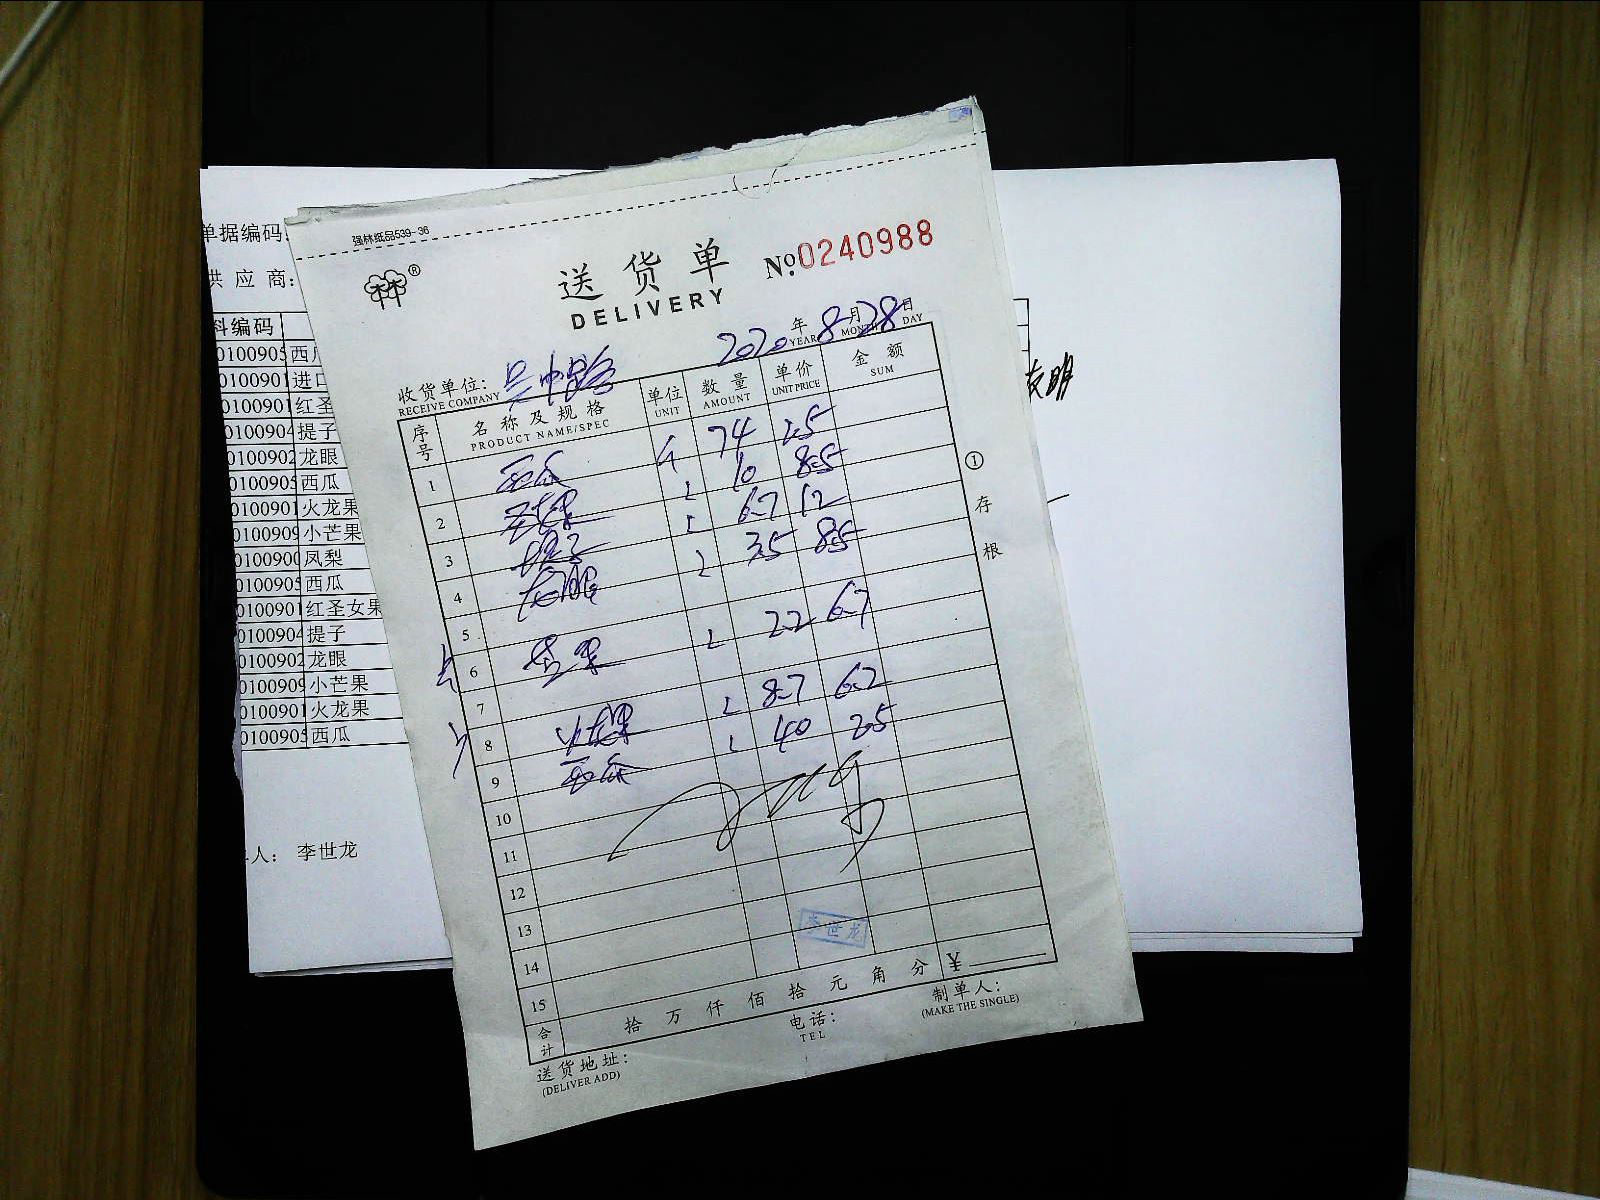 强林纸品539-36
®
送货单
DELIVERY
No 0240988
2020年8月28日
YEAR MONTH DAY
收货单位: 吴中路
RECEIVE COMPANY
序号 名称及规格 单位 数量 单价 金额
PRODUCT NAME/SPEC UNIT AMOUNT UNIT PRICE SUM
1 西瓜 斤 74 2.5
2 圣女果 10 8.5
3 提子 6.7 12
4 龙眼 3.5 8.5
5
6 芒果 2.2 6.7
7
8 火龙果 8.7 6.2
9 西瓜 40 2.5
10
11
12
13
14
15
李世龙
合计 拾万仟佰拾元角分 ¥
送货地址:
(DELIVER ADD)
电话:
TEL
制单人:
(MAKE THE SINGLE)
①存根
单据编码:
供应商:
料编码
0100905 西瓜
0100901 进口
0100901 红圣
0100904 提子
0100902 龙眼
0100905 西瓜
0100901 火龙果
0100909 小芒果
0100900 凤梨
0100905 西瓜
0100901 红圣女果
0100904 提子
0100902 龙眼
0100909 小芒果
0100901 火龙果
0100905 西瓜
人: 李世龙
明